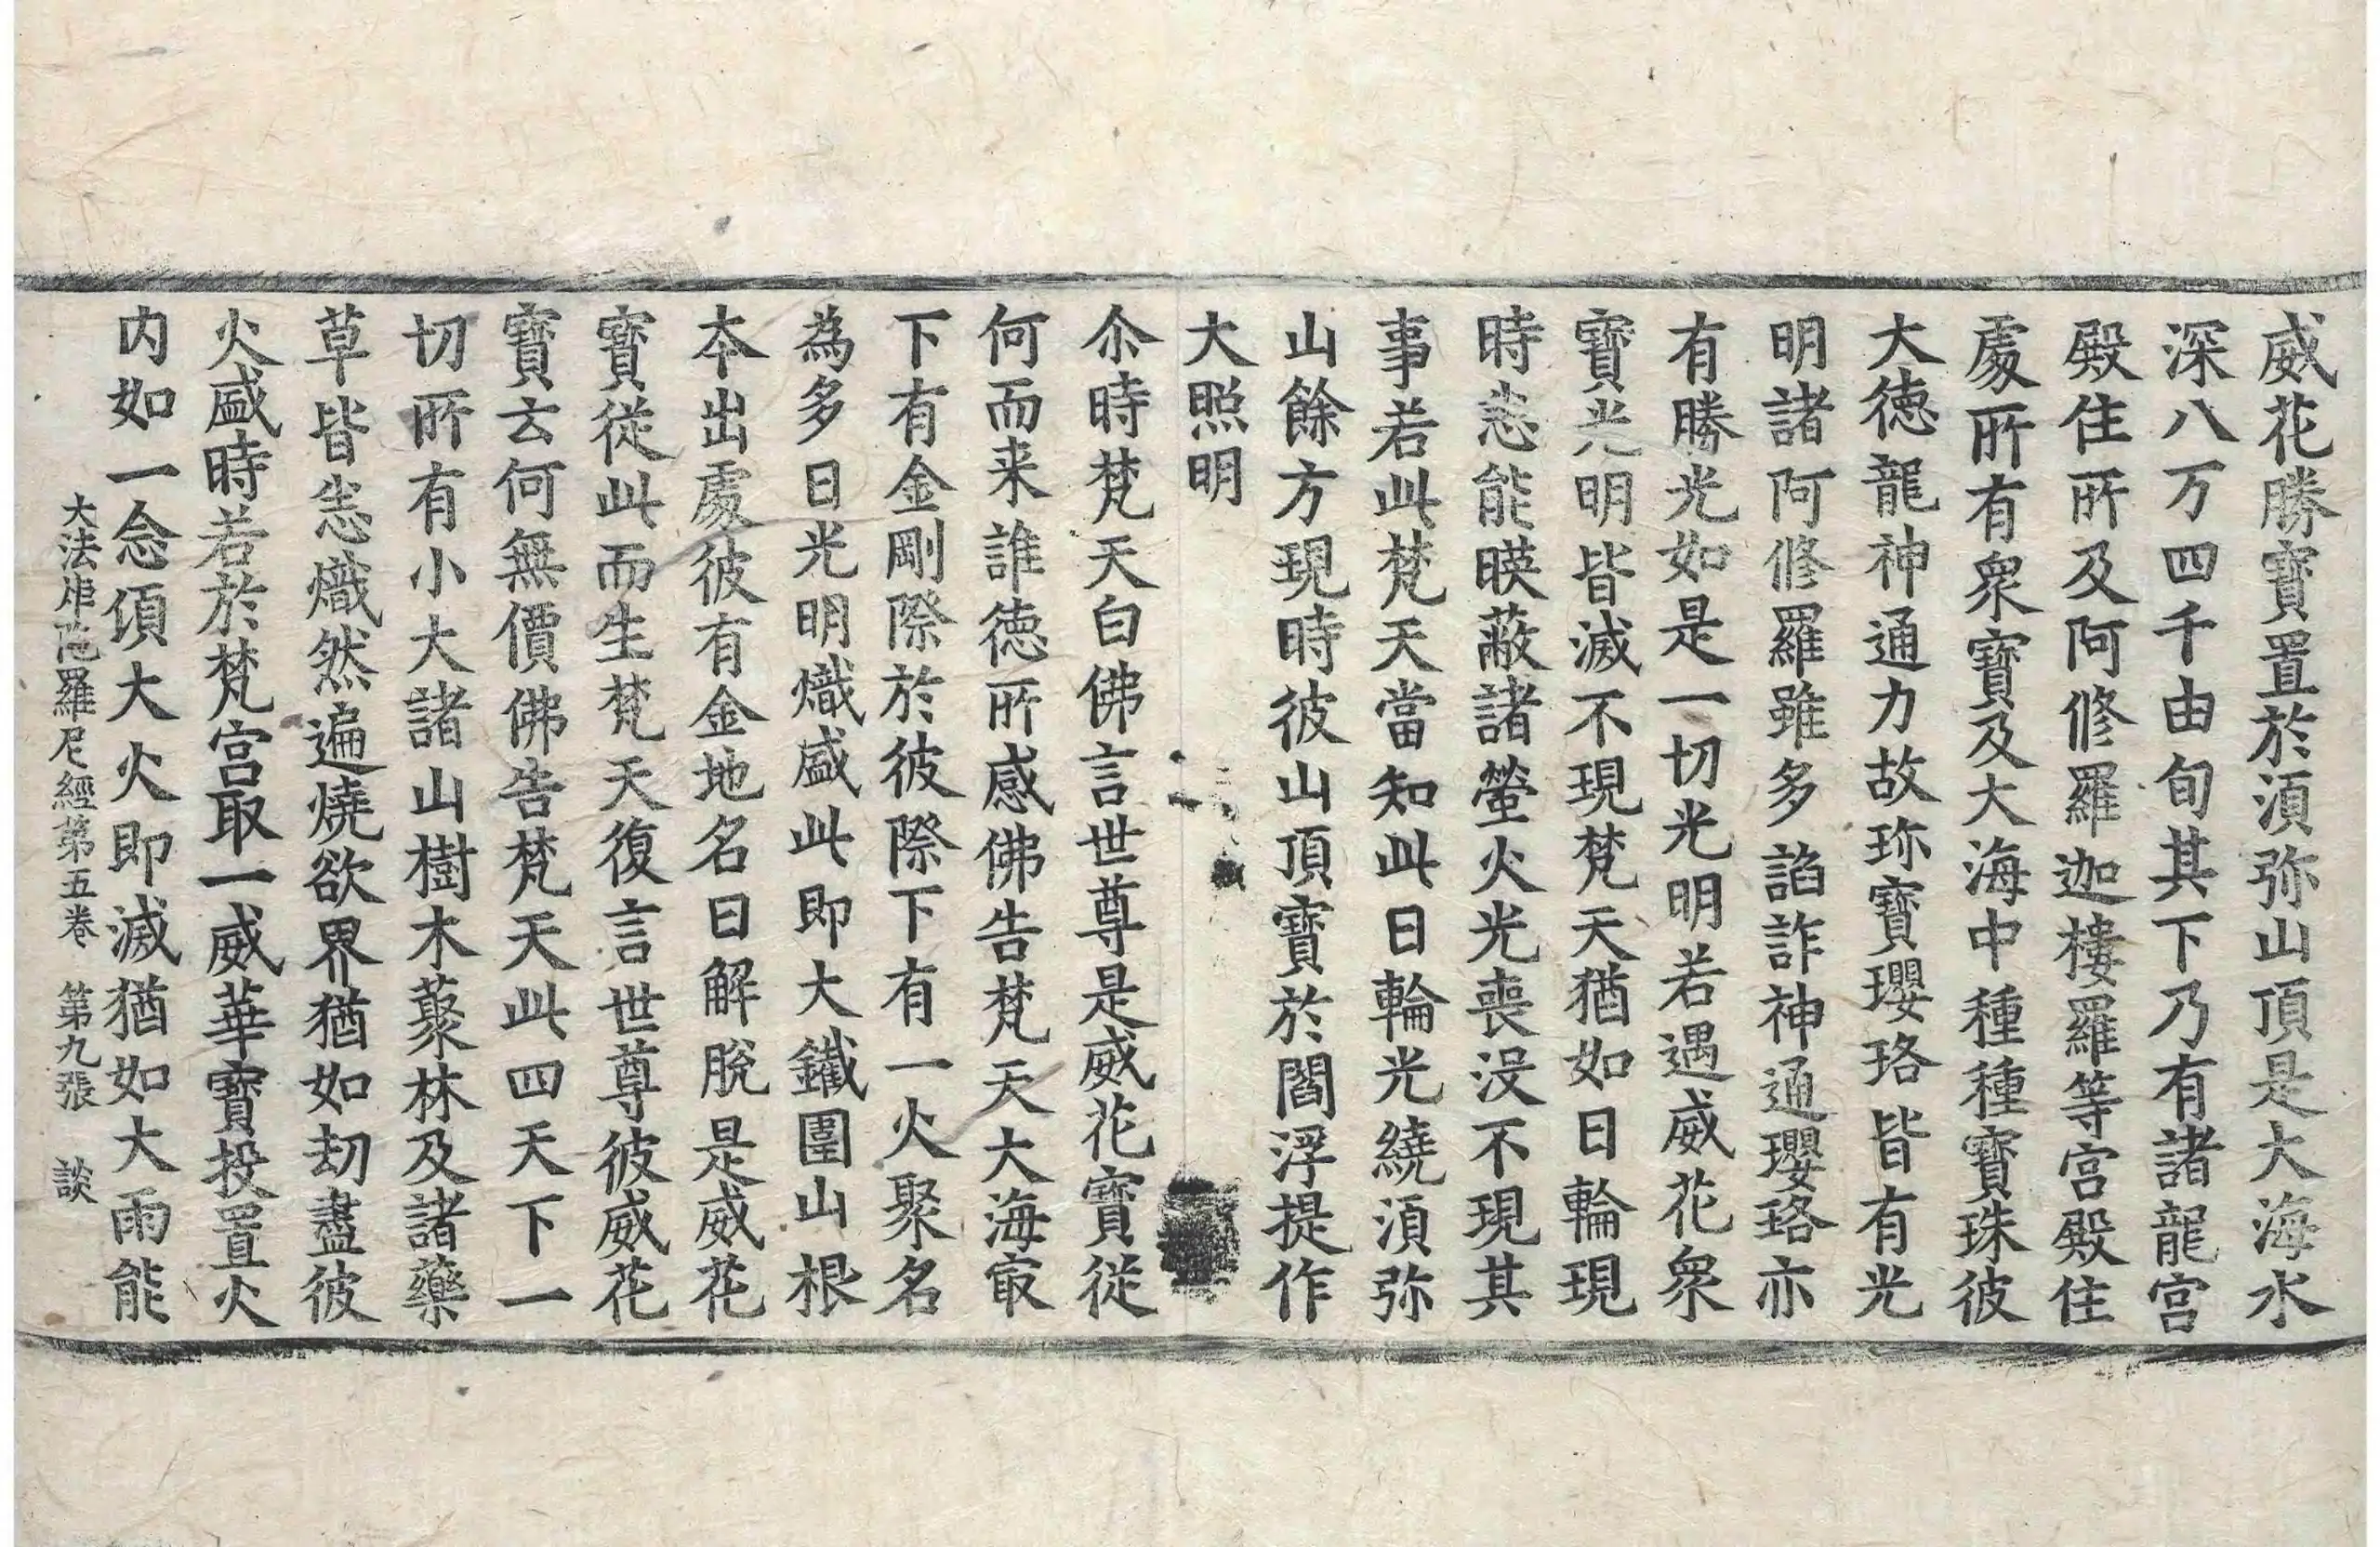 威花勝寶置於湏弥山頂是大海水
深八万四千由旬其下乃有諸龍宮
殿住所及阿修羅迦樓羅等宮殿住
處所有衆寶及大海中種種寶珠彼
大德龍神通力故珎寶瓔珞皆有光
明諸阿修羅雖多諂詐神通瓔珞亦
有勝光如是一切光明若遇威花衆
寶光明皆滅不現梵天猶如日輪現
時悉能暎蔽諸螢火光喪没不現其
事若此梵天當知此日輪光繞湏弥
山餘方現時彼山頂寶於閻浮提作
大照明
尒時梵天白佛言世尊是威花寶從
何而来誰德所感佛告梵天大海㝡
下有金剛際於彼際下有一火聚名
為多日光明熾盛此即大鐵圍山根
本出處彼有金地名曰解脫是威花
寶從此而生梵天復言世尊彼威花
寶云何無價佛告梵天此四天下一
切所有小大諸山樹木藂林及諸藥
草皆悉熾然遍燒欲界猶如劫盡彼
火盛時若於梵宮取一威華寶投置火
内如一念頃大火即滅猶如大雨能
大法炬陁羅尼經第五卷 第九張 談